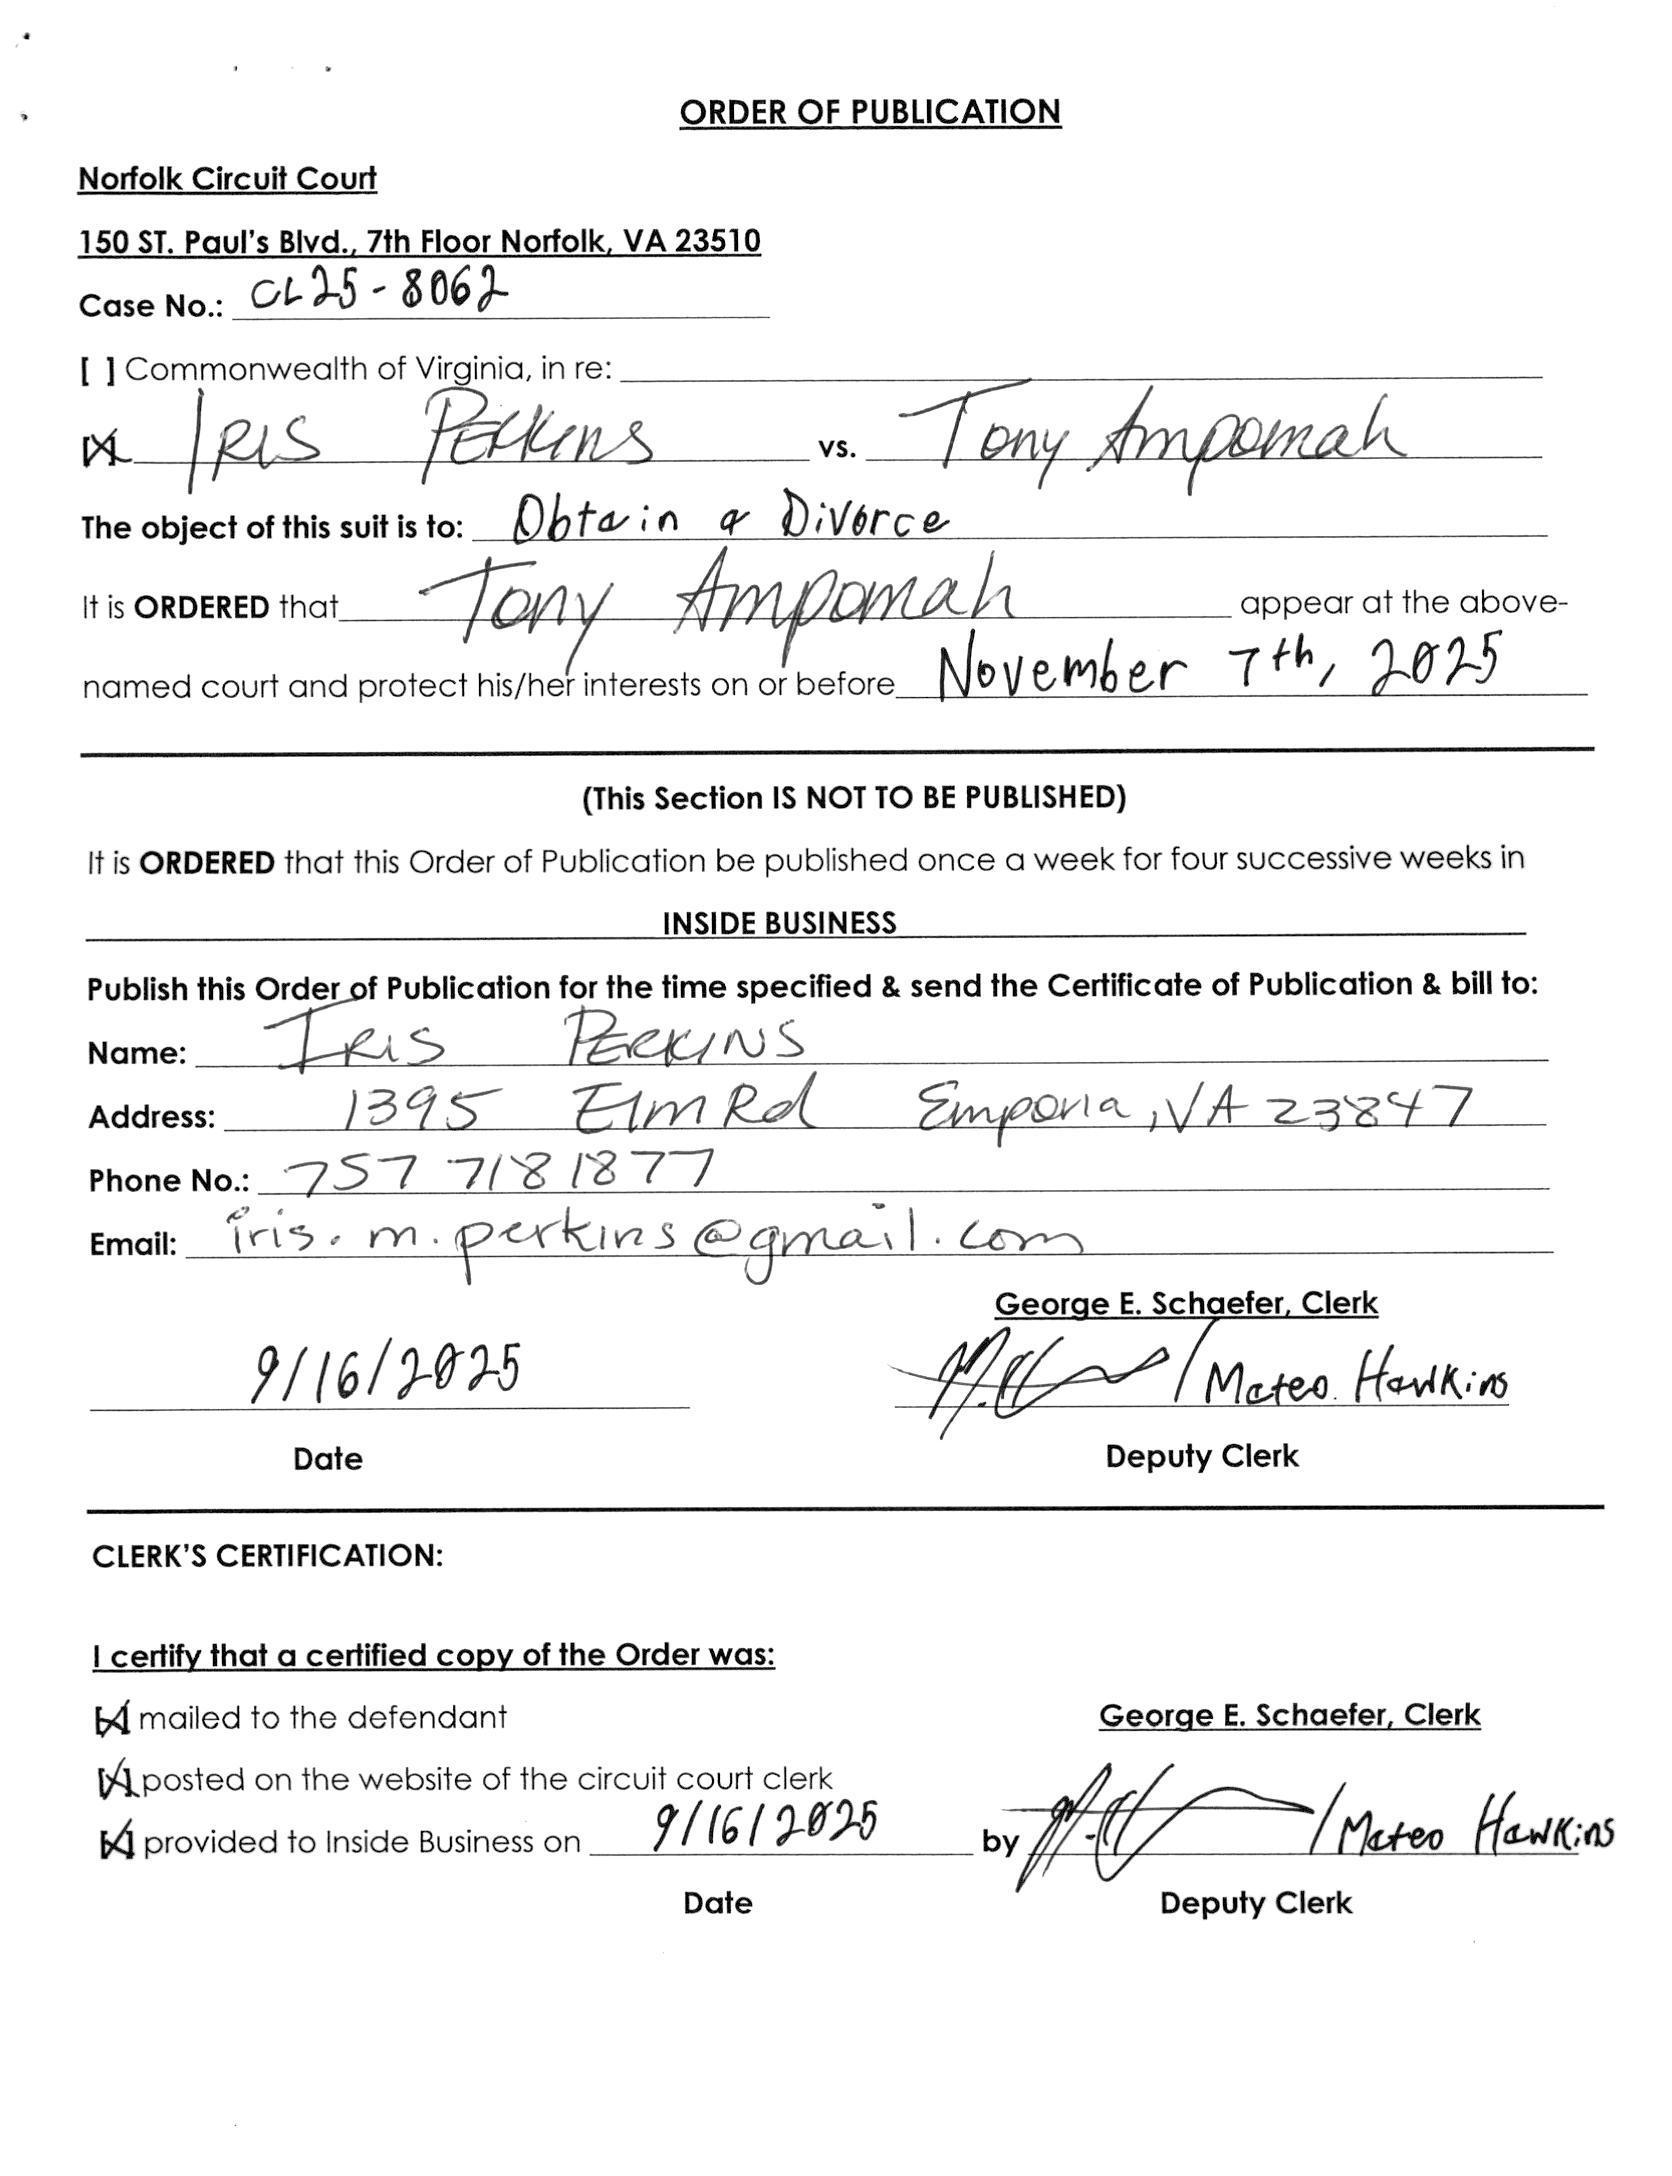 ORDER OF PUBLICATION
Norfolk Circuit Court
150 ST. Paul's Blvd., 7th Floor Norfolk, VA 23510
Case No.: CL25-8062
[ ] Commonwealth of Virginia, in re:
[X] IRIS PERKINS vs. Tony Ampomah
The object of this suit is to: Obtain a Divorce
It is ORDERED that Tony Ampomah appear at the above-
named court and protect his/her interests on or before November 7th, 2025
(This Section IS NOT TO BE PUBLISHED)
It is ORDERED that this Order of Publication be published once a week for four successive weeks in
INSIDE BUSINESS
Publish this Order of Publication for the time specified & send the Certificate of Publication & bill to:
Name: IRIS PERKINS
Address: 1395 Elm Rd Emporia, VA 23847
Phone No.: 757 718 1877
Email: iris.m.perkins@gmail.com
George E. Schaefer, Clerk
9/16/2025 / Mateo Hawkins
Date Deputy Clerk
CLERK'S CERTIFICATION:
I certify that a certified copy of the Order was:
[X] mailed to the defendant George E. Schaefer, Clerk
[X] posted on the website of the circuit court clerk
[X] provided to Inside Business on 9/16/2025 by / Mateo Hawkins
Date Deputy Clerk